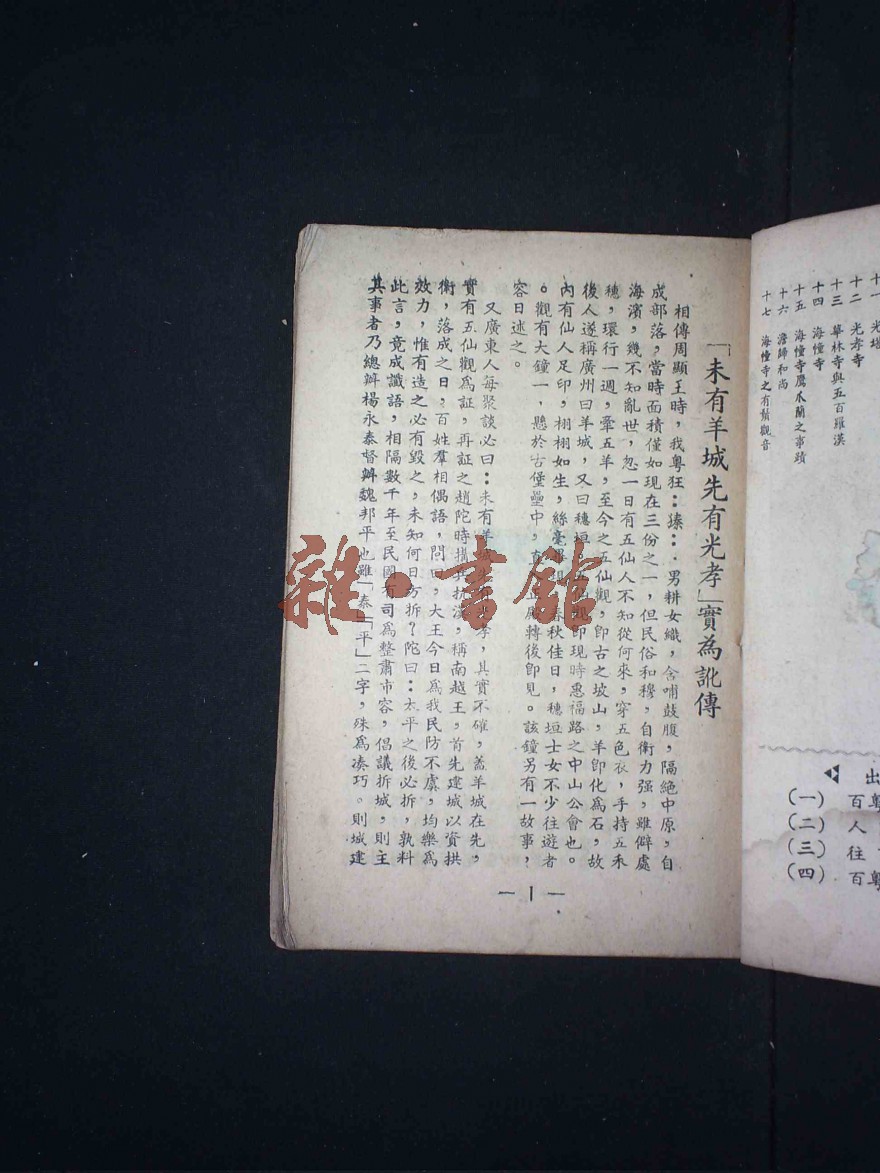 「未有羊城先有光孝」實為訛傳
相傳周顯王時，我粵狂：獉：．男耕女織，含哺鼓腹，隔絶中原，自
成部落，當時面積僅如現在三份之一，但民俗和穆，自衛力强，雖僻處
海濱，幾不知亂世，忽一日有五仙人不知從何來，穿五色衣，手持五禾
穗，環行一週，牽五羊，至今之五仙觀，卽古之坡山，羊卽化為石，故
後人遂稱廣州曰羊城，又曰穗垣，五仙觀卽現時惠福路之中山公會也。
內有仙人足印，栩栩如生，絲毫畢 春秋佳日，穗垣士女不少往遊者
。觀有大鐘一，懸於古堡壘中， 轉後卽見。該鐘另有一故事，
容日述之。
又廣東人每聚談必曰：未有羊城先有光孝，其實不確，蓋羊城在先，
實有五仙觀爲証，再証之趙陀時搆兵抗漢，稱南越王，首先建城以資拱
衛，落成之日，百姓羣相偶語，問曰，大王今日爲我民防不虞，均樂爲
效力，惟有造之必有毀之，未知何日方拆？陀曰：太平之後必拆，孰料
此言，竟成讖語，相隔數千年至民國有司爲整肅市容，倡議拆城，則主
其事者乃總辦楊永泰督辦魏邦平也雖「泰」「平」二字，殊爲凑巧。則城建
— 1 —
十一 光塔
十二 光孝寺
十三 華林寺與五百羅漢
十四 海幢寺
十五 海幢寺鷹爪蘭之事蹟
十六 澹歸和尚
十七 海幢寺之有鬚觀音
出
(一) 百粵
(二) 人
(三) 往
(四) 百粵
雜·書館